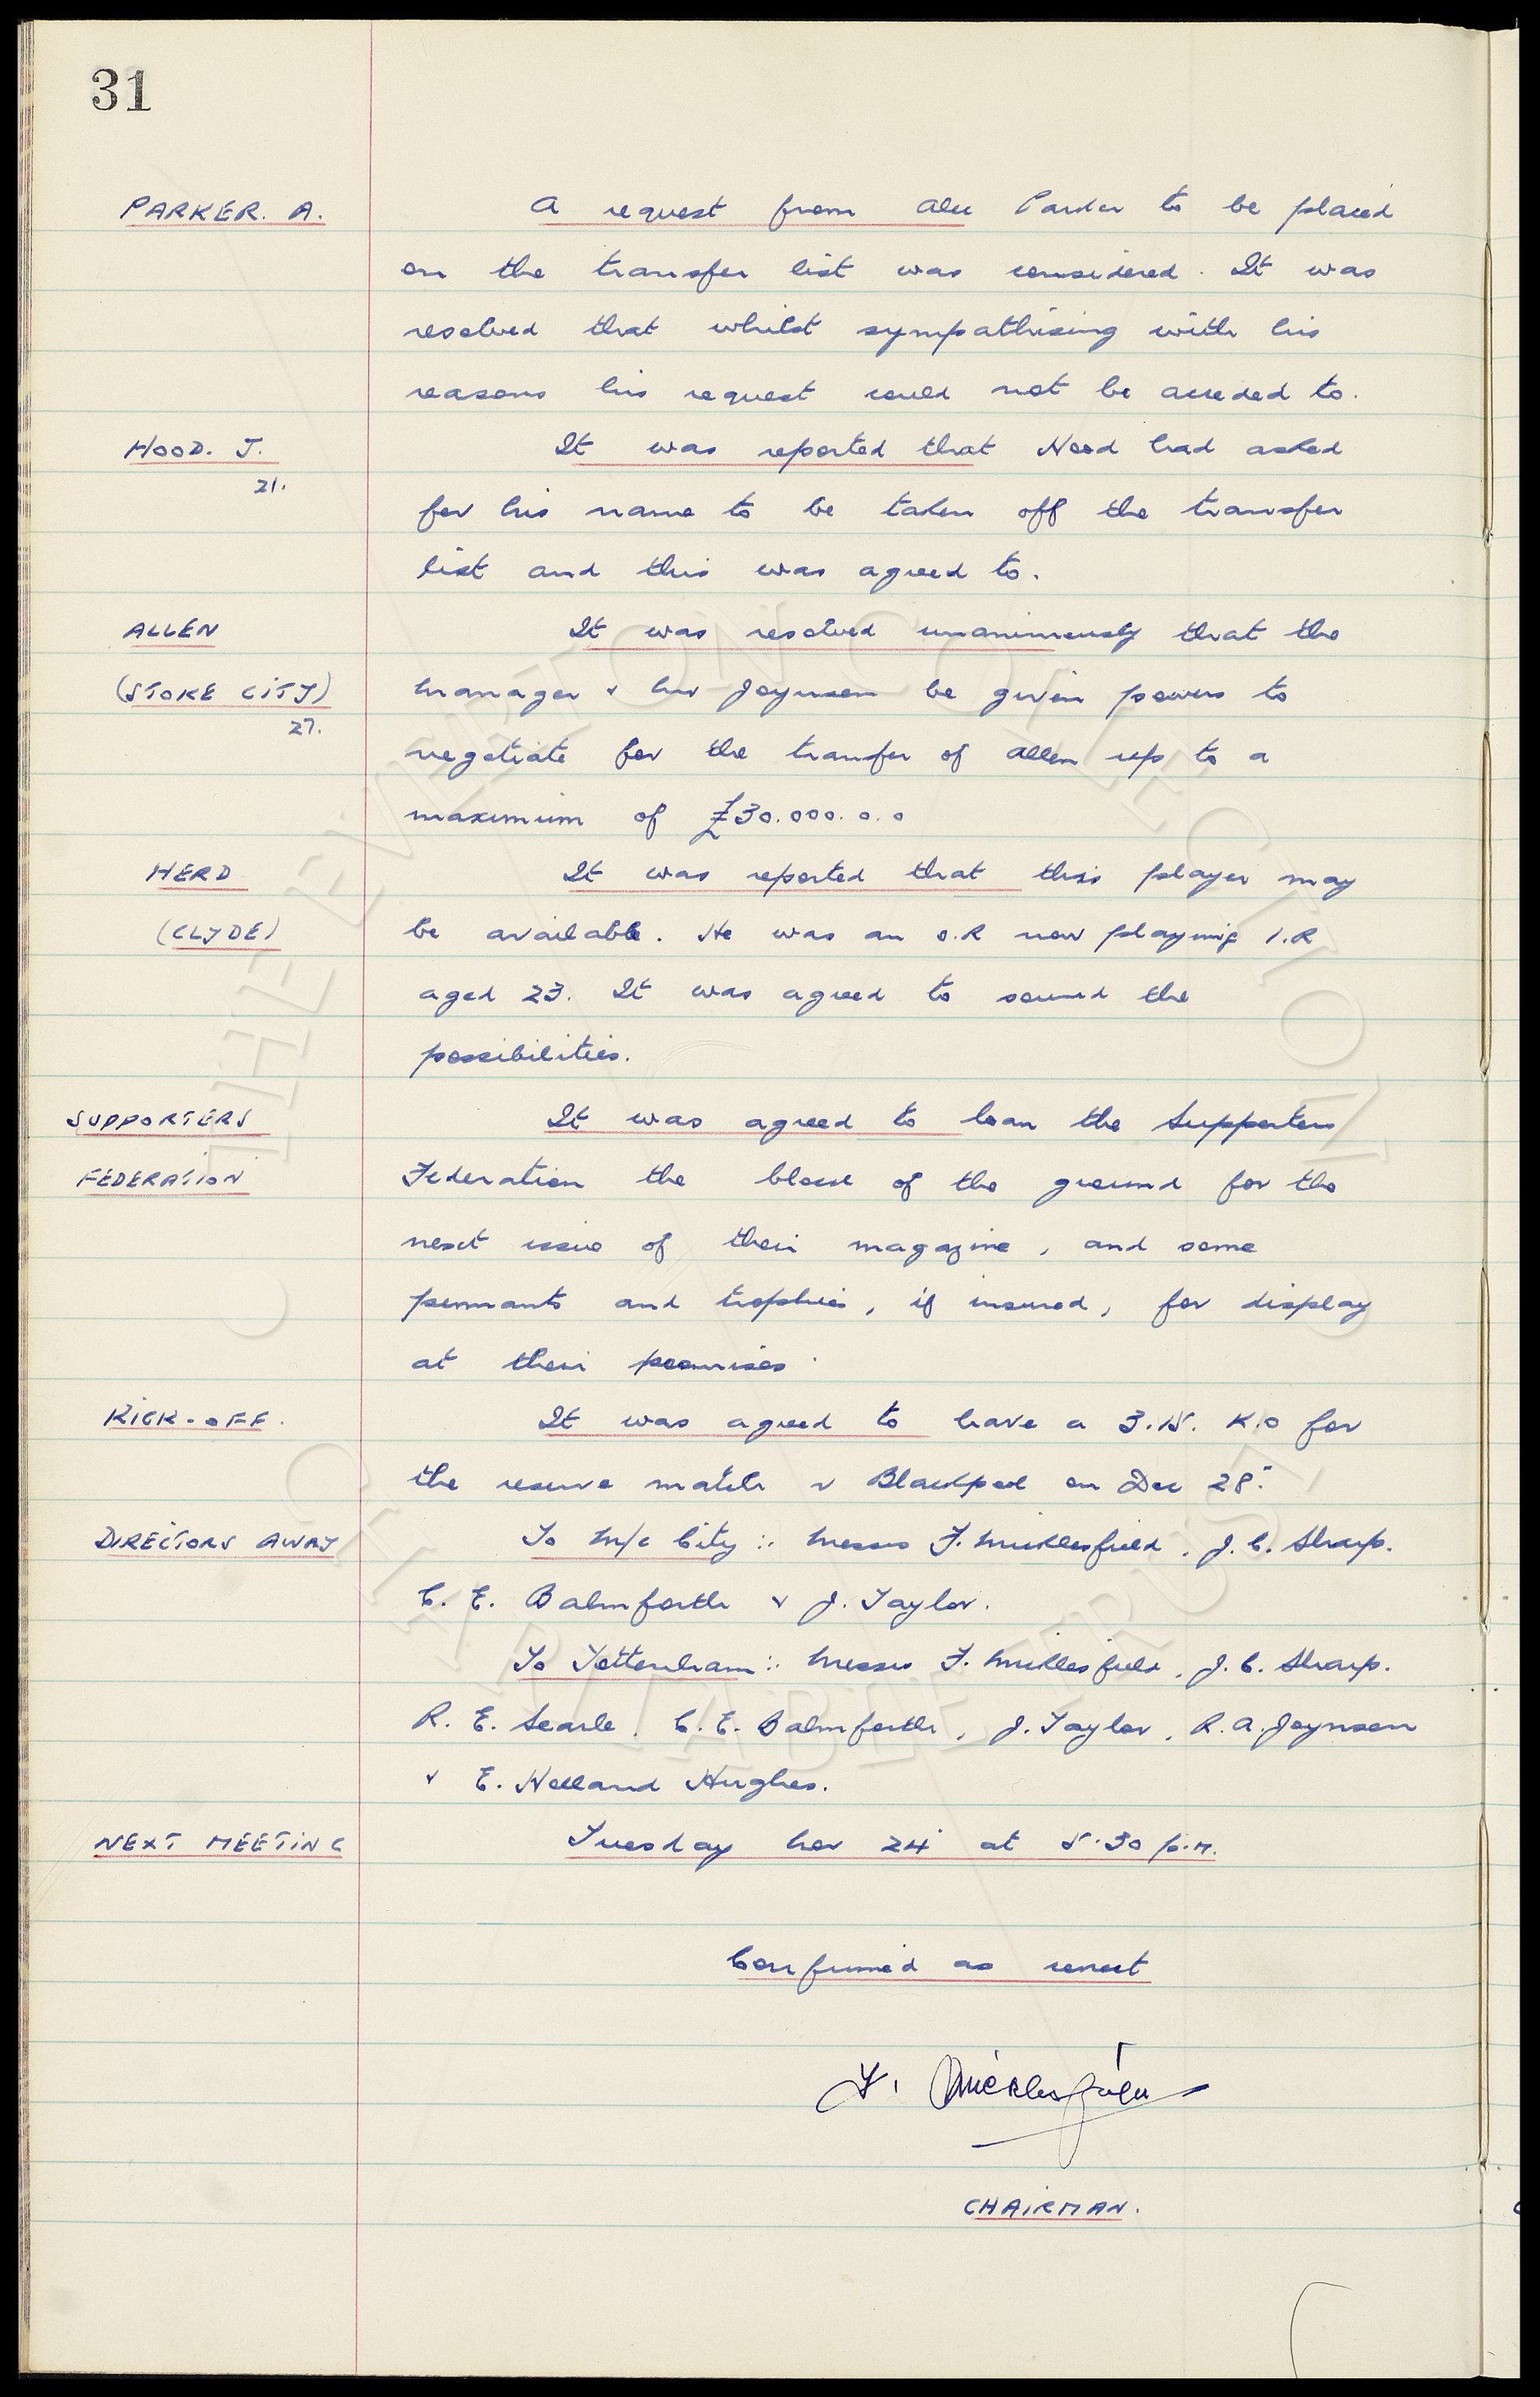 31
PARKER. A. A request from Alec Parker to be placed
on the transfer list was considered. It was
resolved that whilst sympathising with his
reasons his request could not be acceded to.
HOOD. J. It was reported that Hood had asked
21.
for his name to be taken off the transfer
list and this was agreed to.
ALLEN It was resolved unanimously that the
(STOKE CITY) manager & Mr Joynson be given powers to
27.
negotiate for the transfer of Allen up to a
maximum of £30.000.0.0
HERD It was reported that this player may
(CLYDE) be available. He was an O.R now playing I.R
aged 23. It was agreed to sound the
possibilities.
SUPPORTERS It was agreed to loan the Supporters
FEDERATION Federation the block of the ground for the
next issue of their magazine, and some
pennants and trophies, if insured, for display
at their premises.
KICK-OFF. It was agreed to have a 3.15. K.O for
the reserve match v Blackpool on Dec 28".
DIRECTORS AWAY To M/c City :. Messrs F. Micklesfield, J.C. Sharp.
C. E. Balmforth & J. Taylor.
To Tottenham :. Messrs F. Micklesfield, J.C. Sharp.
R. E. Searle, C.E. Balmforth, J. Taylor, R.A. Joynson
& E. Holland Hughes.
NEXT MEETING Tuesday Nov 24" at 5.30 p.m.
Confirmed as correct
F. Micklesfield
CHAIRMAN.
THE EVERTON COLLECTION
CHARITABLE TRUST